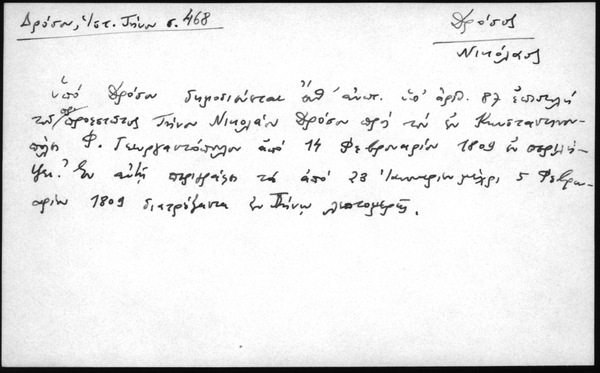 Δρόσου, Ἱστ. Τήνου σ. 468
Δρόσος
Νικόλαος
ὑπό Δρόσου δημοσιεύεται ὑπ' ἀρθ. 87 ἐπιστολή
τοῦ προεστῶτος Τήνου Νικολάου Δρόσου πρός τόν ἐν Κωνσταντινου-
πόλει Φ. Γεωργαντόπουλο ἀπό 14 Φεβρουαρίου 1809 ἐν
Ἐν αὐτῇ περιγράφει τά ἀπό 28 Ἰανουαρίου μέχρι 5 Φεβρου-
αρίου 1809 διατρέξαντα ἐν Τήνῳ λεπτομερῶς.